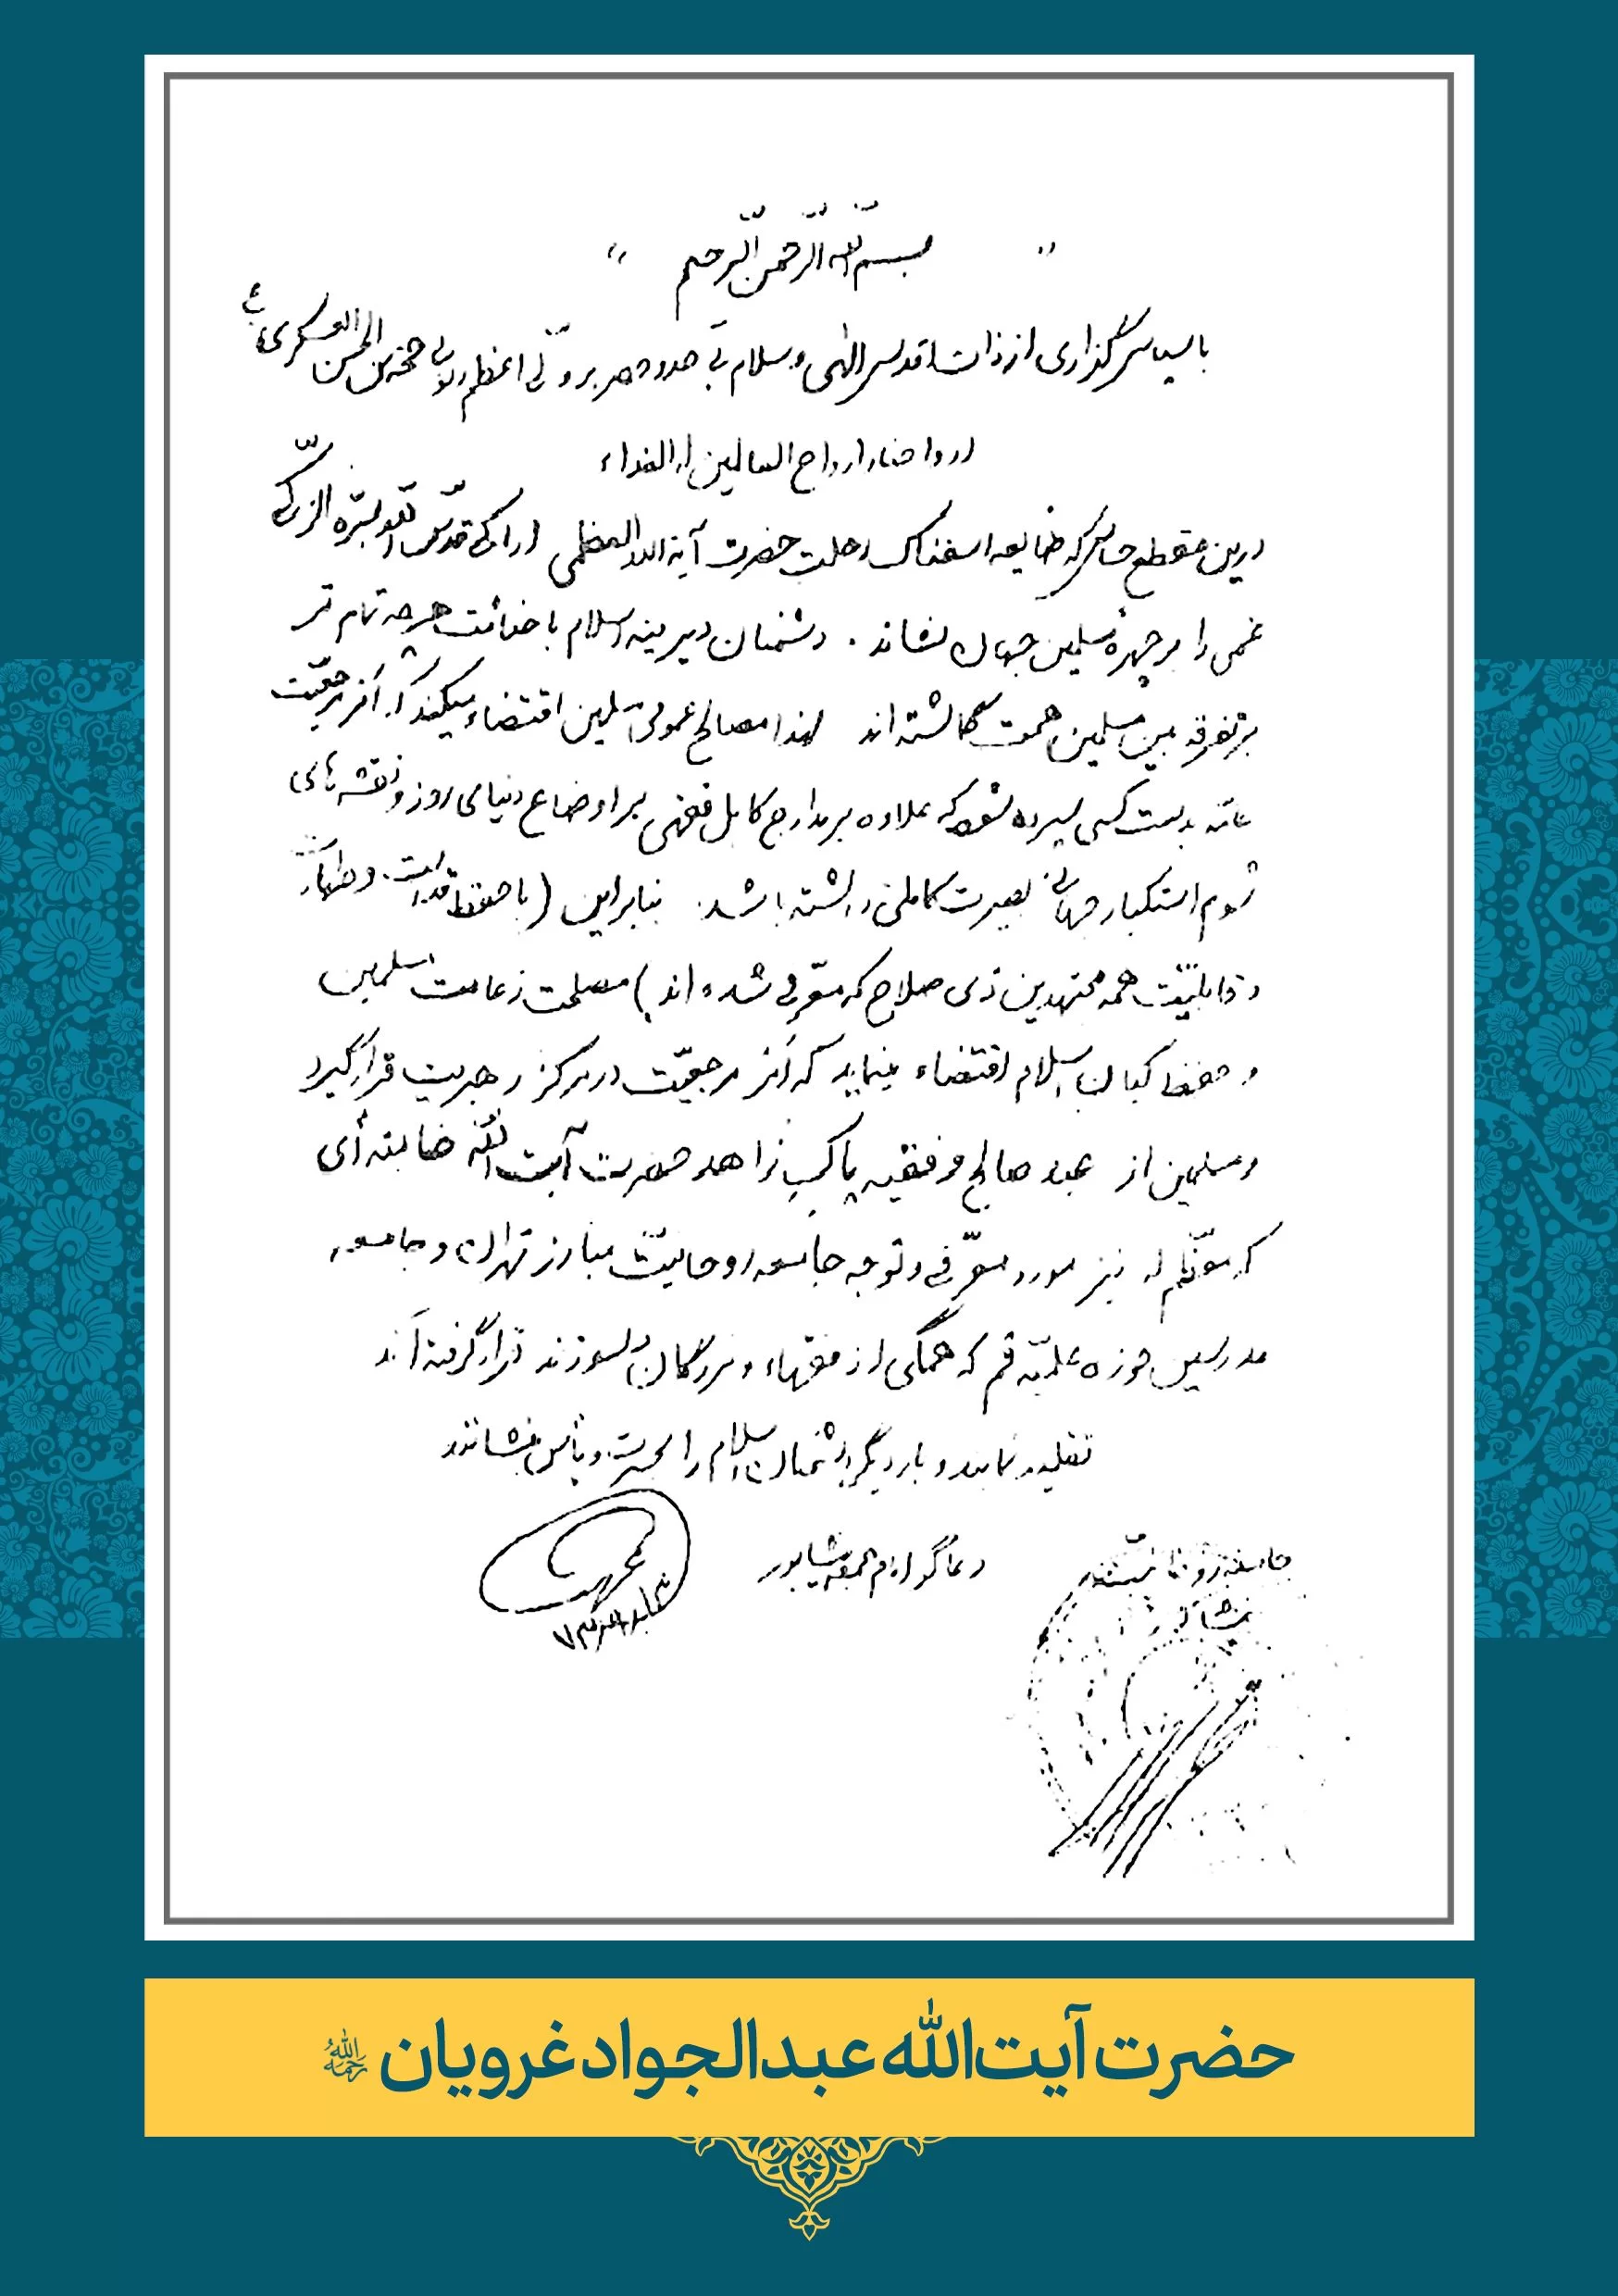 " بسم الله الرحمن الرحیم "
با سپاسگزاری از ذات اقدس الهی و سلام بی حد و حصر بر ولی اعظم حجة بن الحسن العسکری
ارواحنا و ارواح العالمین له الفداء
درین مقطع حساس که ضایعه اسفناک رحلت حضرت آیة الله العظمی اراکی قدس الله سره الزکی
غمی را بر چهره مسلمین جهان نشاند . دشمنان دیرینه اسلام با خباثت هرچه تمام تر
بر تفرقه بین مسلمین همت گماشته اند لهذا مصالح عمومی مسلمین اقتضاء میکند که امر مرجعیّت
عامّه بدست کسی سپرده شود که علاوه بر مدارج کامل فقهی بر اوضاع دنیای روز و نقشه های
شوم استکبار جهانی بصیرت کاملی داشته باشد. بنابراین (با حفظ قداست و طهارت
و قابلیّت همه مجتهدین ذی صلاح که معرّفی شده اند) مصلحت زعامت مسلمین
و حفظ کیان اسلام اقتضاء مینماید که امر مرجعیّت در مرکز رهبریت قرار گیرد
و مسلمین از عبد صالح و فقیه پاک زاهد حضرت آیت الله خامنه ای
که معظّم له نیز مورد معرّفی و توجه جامعه روحانیّت مبارز تهران و جامعه
مدرسین حوزه علمیّه قم که همگی از فقهاء و بزرگان دلسوزند قرار گرفته اند
تقلید نمایند و بار دیگر دشمنان اسلام را بحسرت و یأس بنشانند
دعاگو امام جمعه نیشابور
حضرت آیت‌الله عبدالجواد غرویان رحمه‌الله